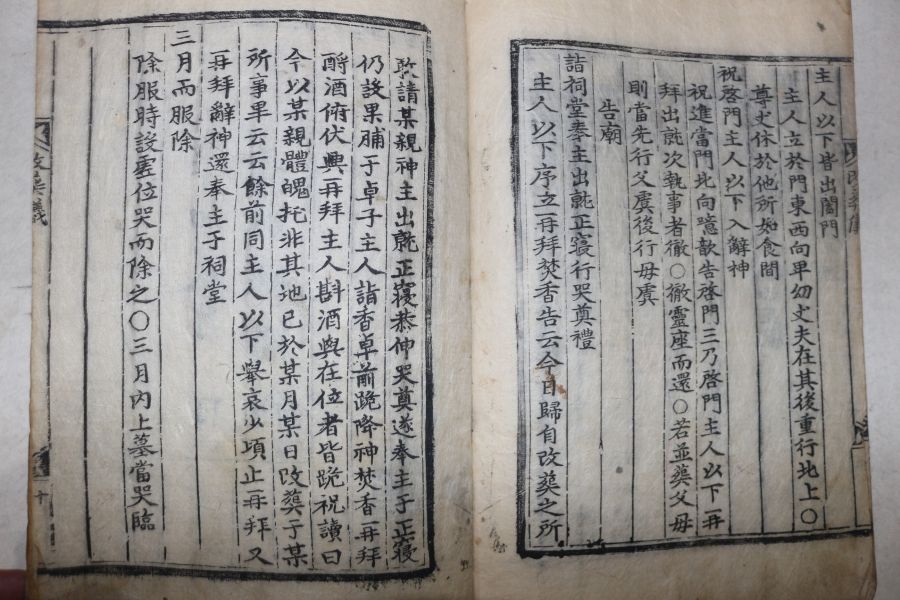 主人以下皆出闔門
主人立於門東西向卑幼丈夫在其後重行北上○
尊丈休於他所如食間
祝啓門主人以下入辭神
祝進當門北向噫歆告啓門三乃啓門主人以下再
拜出就次執事者徹○徹靈座而還○若並葬父母
則當先行父虞後行母虞
告廟
詣祠堂奉主出就正寢行哭奠禮
主人以下序立再拜焚香告云今日歸自改葬之所
敢請某親神主出就正寢恭伸哭奠遂奉主于正寢
仍設果脯于卓子主人詣香卓前跪降神焚香再拜
酹酒俯伏興再拜主人斟酒與在位者皆跪祝讀曰
今以某親體魄托非其地已於某月某日改葬于某
所事畢云云餘前同主人以下擧哀少頃止再拜又
再拜辭神還奉主于祠堂
三月而服除
除服時設虛位哭而除之○三月內上墓當哭臨
改葬儀
十